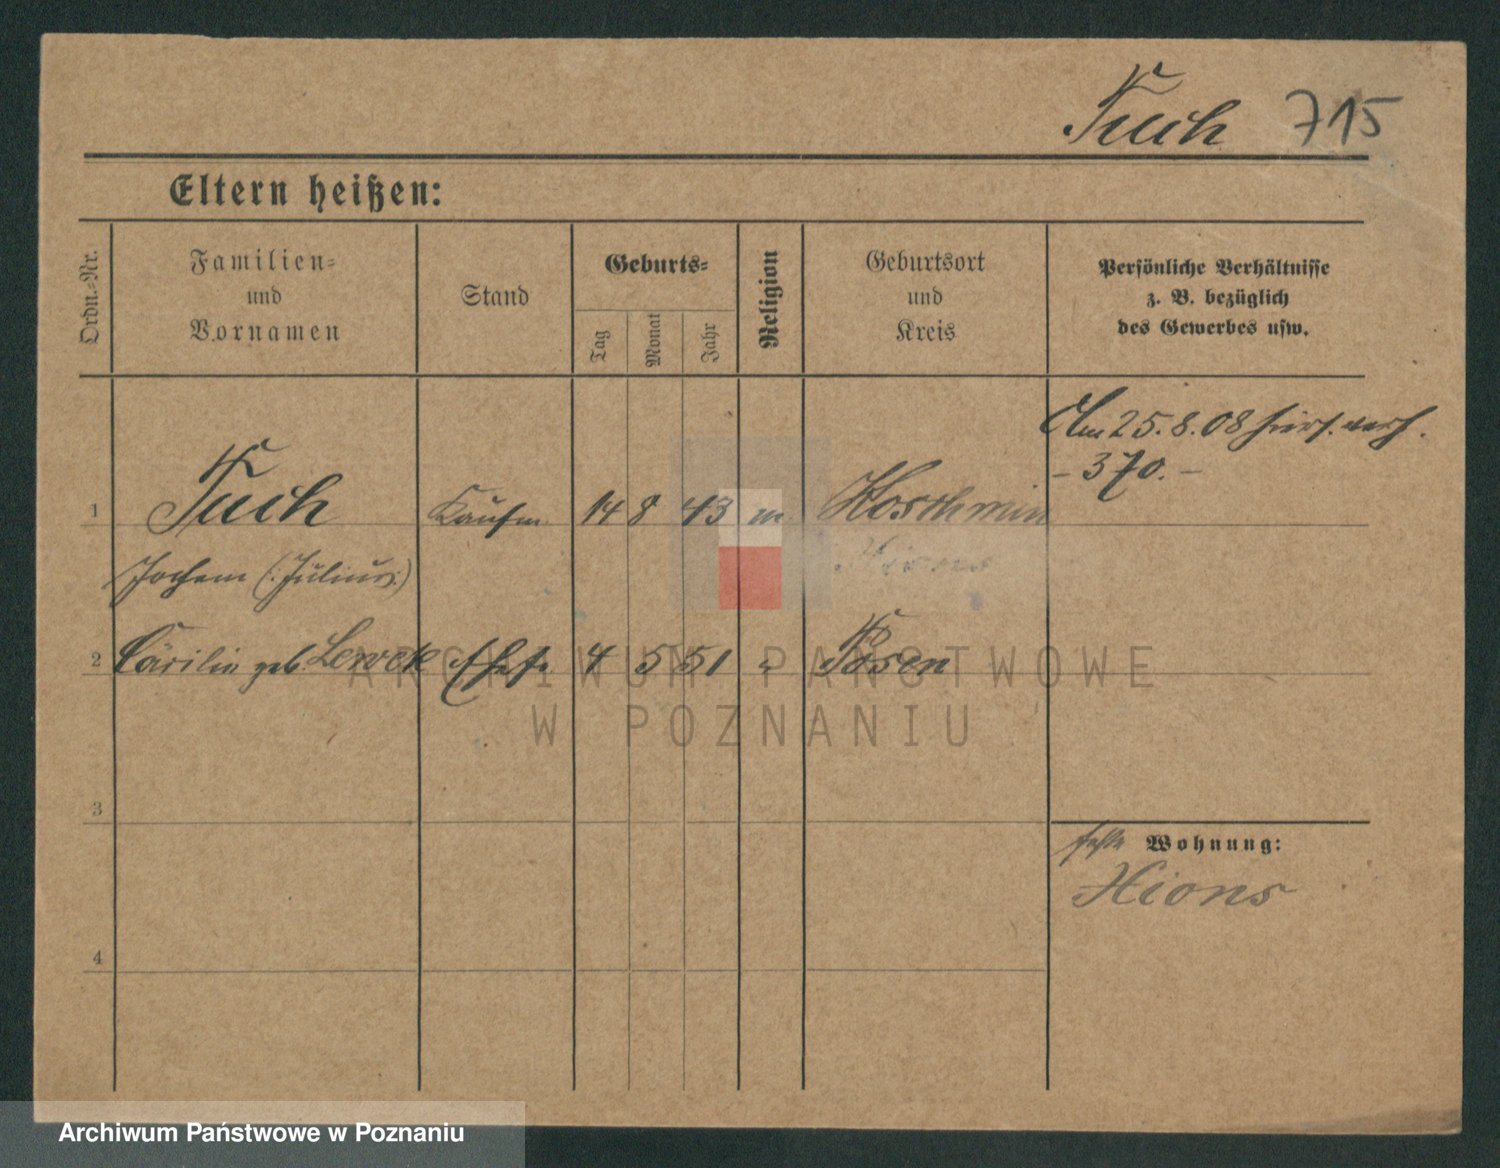 Tuch 715
Eltern heißen:
Ordn.-Nr.
Familien-
und
Vornamen
Stand
Geburts-
Tag
Monat
Jahr
Religion
Geburtsort
und
Kreis
Persönliche Verhältnisse
z. B. bezüglich
des Gewerbes usw.
Am 25.8.08 hier
- 370. -
1 Tuch Kaufm. 14 8 43 m.
Jochem (: Julius :)
2 Cäcilie geb. Ehefr. 4 5 51 " Posen
3
Wohnung:
Xions
4
ARCHIWUM PAŃSTWOWE
W POZNANIU
Archiwum Państwowe w Poznaniu